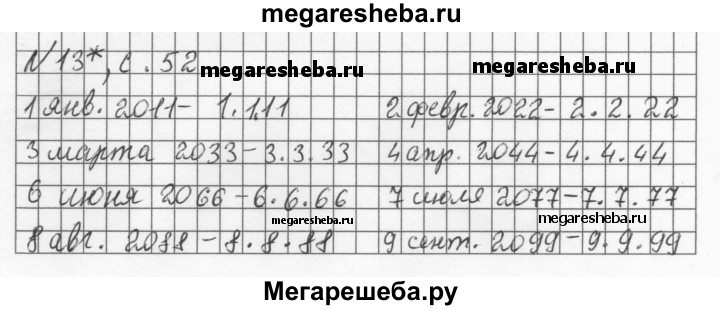 megaresheba.ru
N 13*, с. 52
megaresheba.ru megaresheba.ru
1 янв. 2011 - 1.1.11 2 февр. 2022 - 2.2.22
3 марта 2033 - 3.3.33 4 апр. 2044 - 4.4.44
6 июня 2066 - 6.6.66 7 июля 2077 - 7.7.77
megaresheba.ru megaresheba.ru
8 авг. 2088 - 8.8.88 9 сент. 2099 - 9.9.99
Мегарешеба.ру